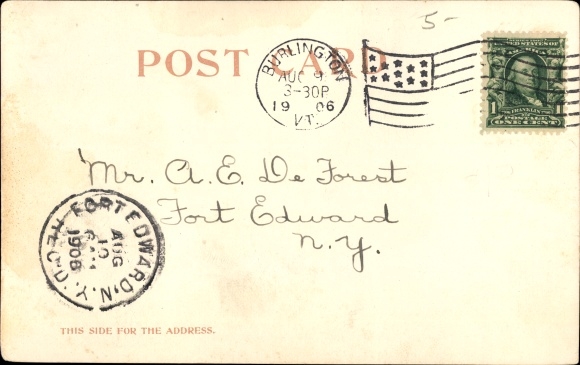 5-
POST CARD
BURLINGTON
AUG 9
3-30P
19 06
VT.
UNITED STATES OF
FRANKLIN
1 POSTAGE 1
ONE CENT
Mr. A. E. De Forest
Fort Edward
N.Y.
FORT EDWARD, N.Y.
AUG
10
1906
REC'D.
THIS SIDE FOR THE ADDRESS.